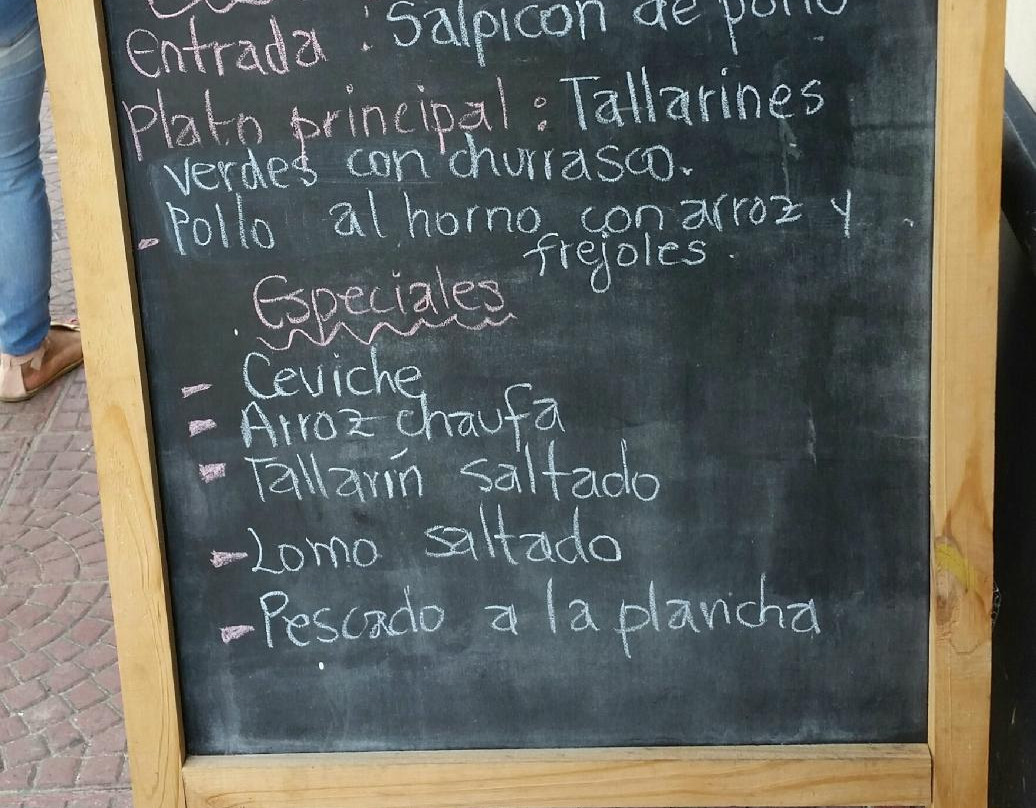 entrada : Salpicón de pollo
Plato principal : Tallarines
verdes con churrasco.
- Pollo al horno con arroz y
frejoles.
Especiales
- Ceviche
- Arroz chaufa
- Tallarín saltado
- Lomo saltado
- Pescado a la plancha